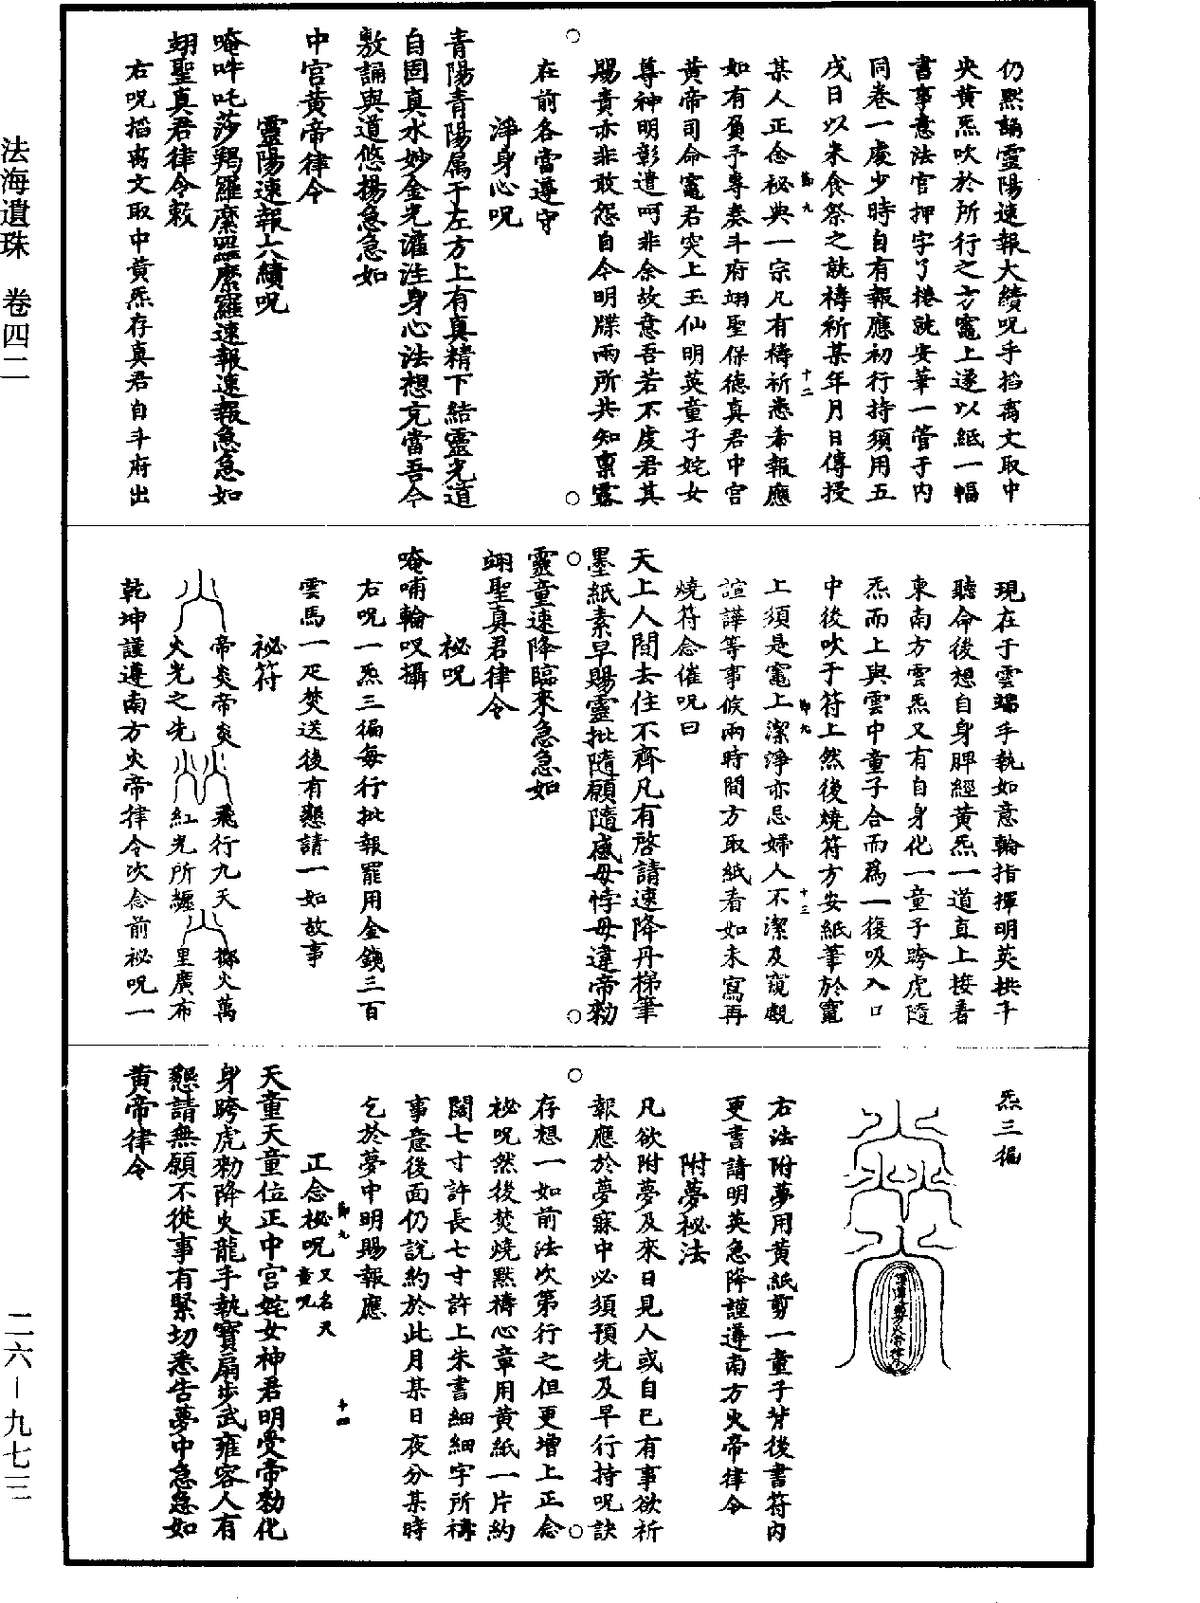 仍黙誦靈陽速報大績呪手掐离文取中
央黄炁吹於所行之方竈上遂以紙一幅
書事意法官押字了捲訖安筆一管于内
同卷一處少時自有報應初行持須用五
戌日以米食祭之訖禱祈某年月日傳授
某人正念祕典一宗凡有禱祈悉希報應
如有負予專奏斗府翊聖保德真君中宫
黄帝司命竈君突上玉仙明英童子姹女
尊神明彰遣呵非余故意吾若不虔君其
賜責亦非敢怨自今明牒兩所共知禀靈
在前各當遵守
淨身心呪
青陽青陽属于左方上有真精下結靈光道
自固真水妙金光灌注身心法想充當吾今
敷誦與道悠揚急急如
中宫黄帝律令
靈陽速報六績呪
唵吽吒莎羯羅縻㗭縻羅速報速報急急如
翊聖真君律令敕
右呪掐离文取中黄炁存真君自斗府出
現在于雲端手執如意輪指揮明英拱手
聽命後想自身脾經黄炁一道直上接着
東南方雲炁又有自身化一童子跨虎隨
炁而上與雲中童子合而爲一復吸入口
中後吹于符上然後燒符方安紙筆於竈
上須是竈上潔淨亦忌婦人不潔及窺覷
諠譁等事候兩時間方取紙看如未寫再
燒符念催呪曰
天上人間去住不齊凡有啓請速降丹梯筆
墨紙素早賜靈批隨願隨感毋悖毋違帝勑
靈童速降臨來急急如
翊聖真君律令
祕呪
唵哺輪㕥攝
右呪一炁三徧每行批報罷用金錢三百
雲馬一疋焚送後有懇請一如故事
祕符
帝炎帝炎
飛行九天
擲火萬
火光之先
紅光所纏
里廣布
乾坤謹遵南方火帝律令次念前祕呪一
炁三徧
右法附夢用黄紙剪一童子背後書符内
更書請明英急降謹遵南方火帝律令
附夢祕法
凡欲附夢及來日見人或自己有事欲祈
報應於夢寐中必須預先及早行持呪訣
存想一如前法次第行之但更增上正念
祕呪然後焚燒黙禱心章用黄紙一片約
闊七寸許長七寸許上朱書細細字所禱
事意後面仍説約於此月某日夜分某時
乞於夢中明賜報應
正念祕呪又名天童呪
天童天童位正中宫姹女神君明受帝勑化
身跨虎勑降火龍手執寶扇步武雍容人有
懇請無願不從事有緊切悉告夢中急急如
黄帝律令
法海遺珠 卷四二
二六－九七三